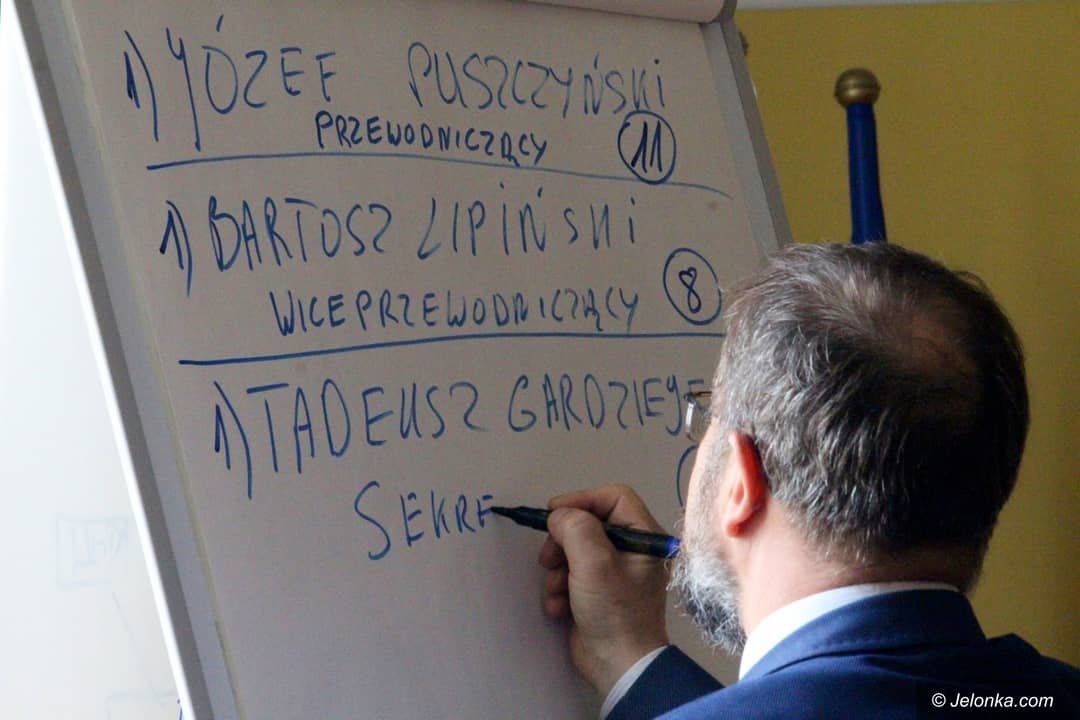 1) JÓZEF PUSZCZYŃSKI
PRZEWODNICZĄCY 11
1) BARTOSZ LIPIŃSKI
WICEPRZEWODNICZĄCY 8
1) TADEUSZ GARDZIEJE
SEKRE
© Jelonka.com